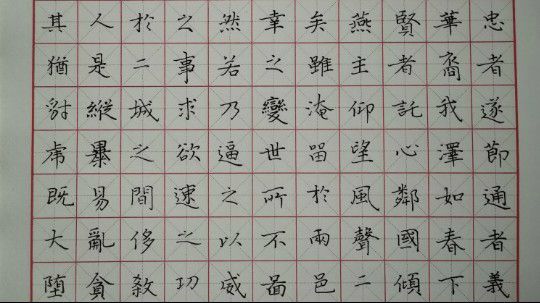 忠者遂節通者義
華裔我澤如春下
賢者託心鄰國傾
燕主仰望風聲二
矣雖淹留於兩邑
幸之變世所不啚
然若乃逼之以威
之事求欲速之功
於二城之間侈殺
人是縱暴易亂貪
其猶豺虎既大堕